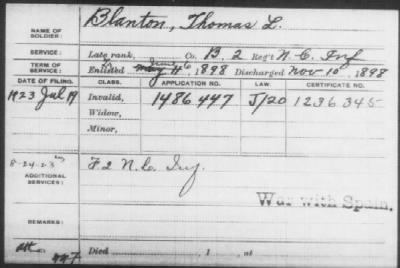 NAME OF SOLDIER: Blanton, Thomas L.
SERVICE: Late rank, Co. B, 2 Reg't N.C. Inf
June 6
TERM OF SERVICE: Enlisted May 4, 1898 Discharged Nov. 10, 1898
DATE OF FILING. CLASS. APPLICATION NO. LAW. CERTIFICATE NO.
1923 Jul 19 Invalid, 1486447 J/20 1236345
Widow,
Minor,
8-24-23
ADDITIONAL SERVICES: F 2 N.C. Inf.
War with Spain.
REMARKS:
Died , 1 , at